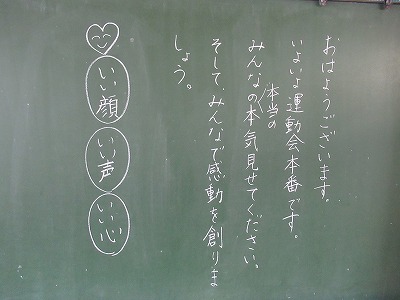 おはようございます。
いよいよ運動会本番です。
みんなの本当の本気見せてください。
そして、みんなで感動を創りま
しょう。
いい顔
いい声
いい心